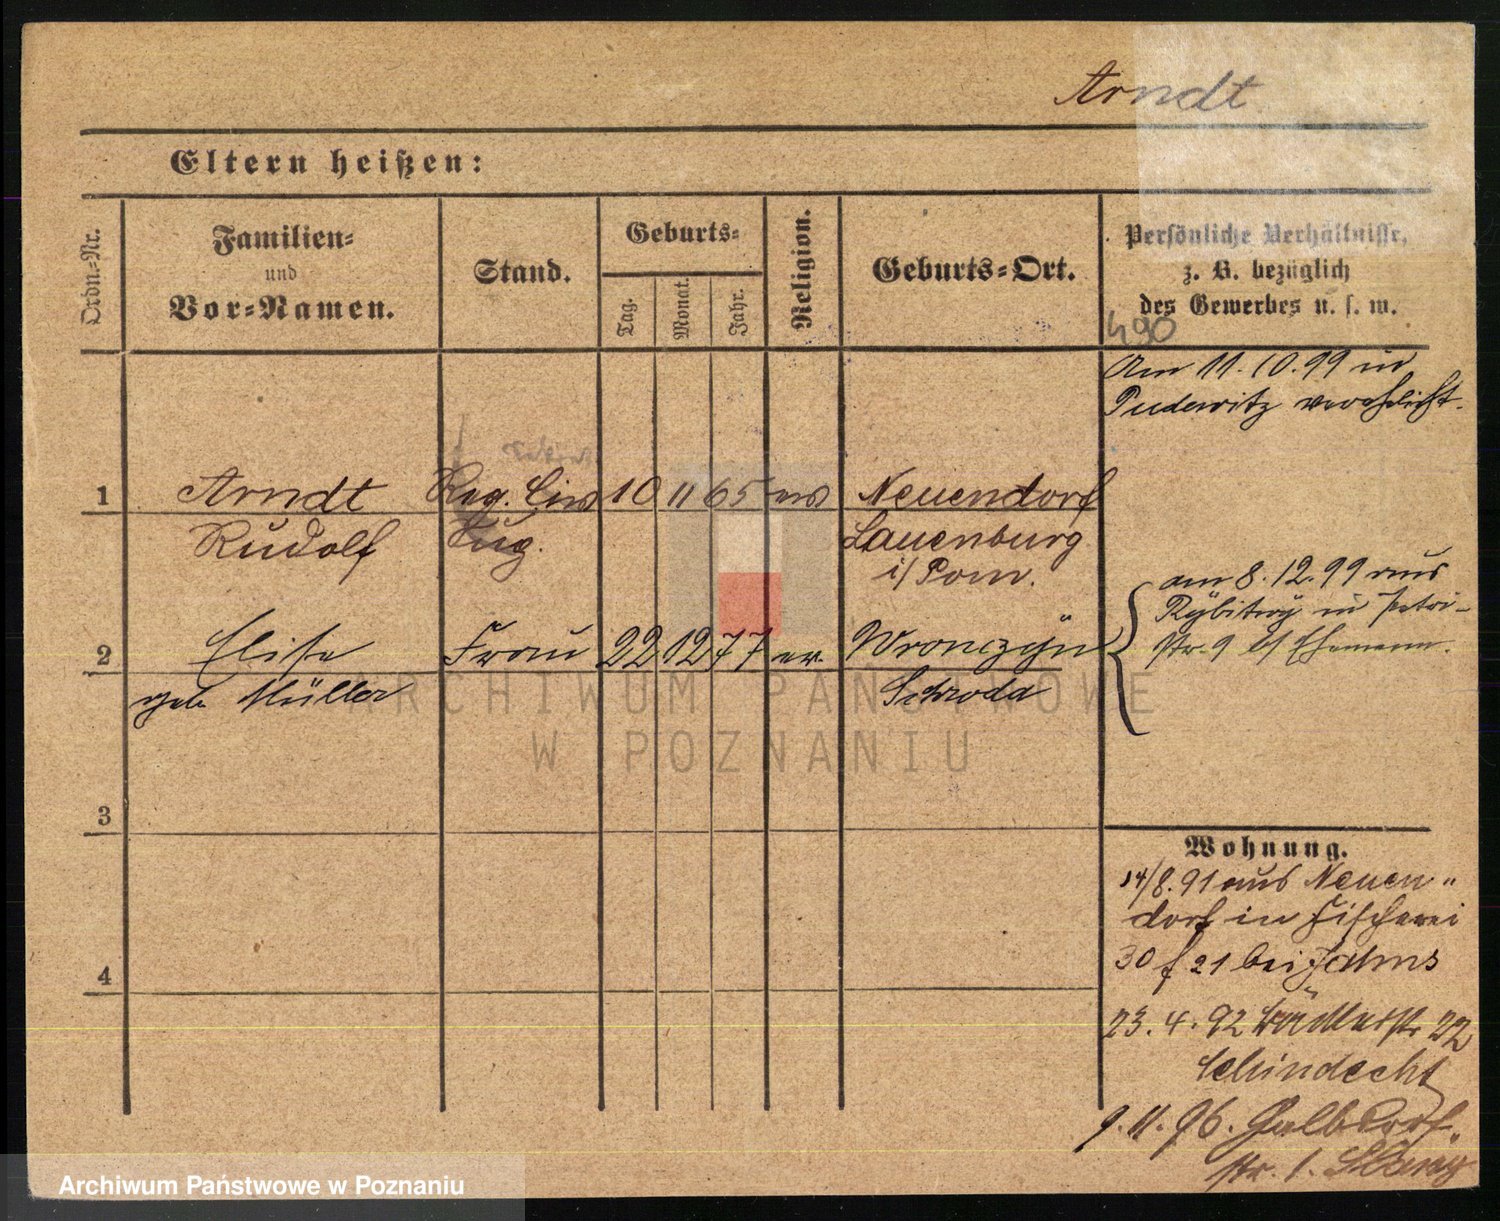 Arndt
Eltern heißen:
Ordn.-Nr.
Familien-
und
Vor-Namen.
Stand.
Geburts-
Tag.
Monat.
Jahr.
Religion.
Geburts-Ort.
Persönliche Verhältnisse,
z. B. bezüglich
des Gewerbes u. s. w.
490
Am 11.10.99 in
Pudewitz verehelicht.
1 Arndt Reg. Civ 10 11 65 ev Neuendorf
Rudolf Sup. Lauenburg
i/Pom.
am 8.12.99 aus
Rybitwy in Petri-
str. 9 b/ Ehemann.
2 Elise Frau 22 12 77 ev. Wronczyn
geb Müller Schroda
ARCHIWUM PAŃSTWOWE
W POZNANIU
3
4
Wohnung.
14/8.91 aus Neuen-
dorf in Fischerei
30 f 21 bei Jahns
23.4.92 22
Schindecht
9.11.96. Halbdorf-
str. 1.
Archiwum Państwowe w Poznaniu